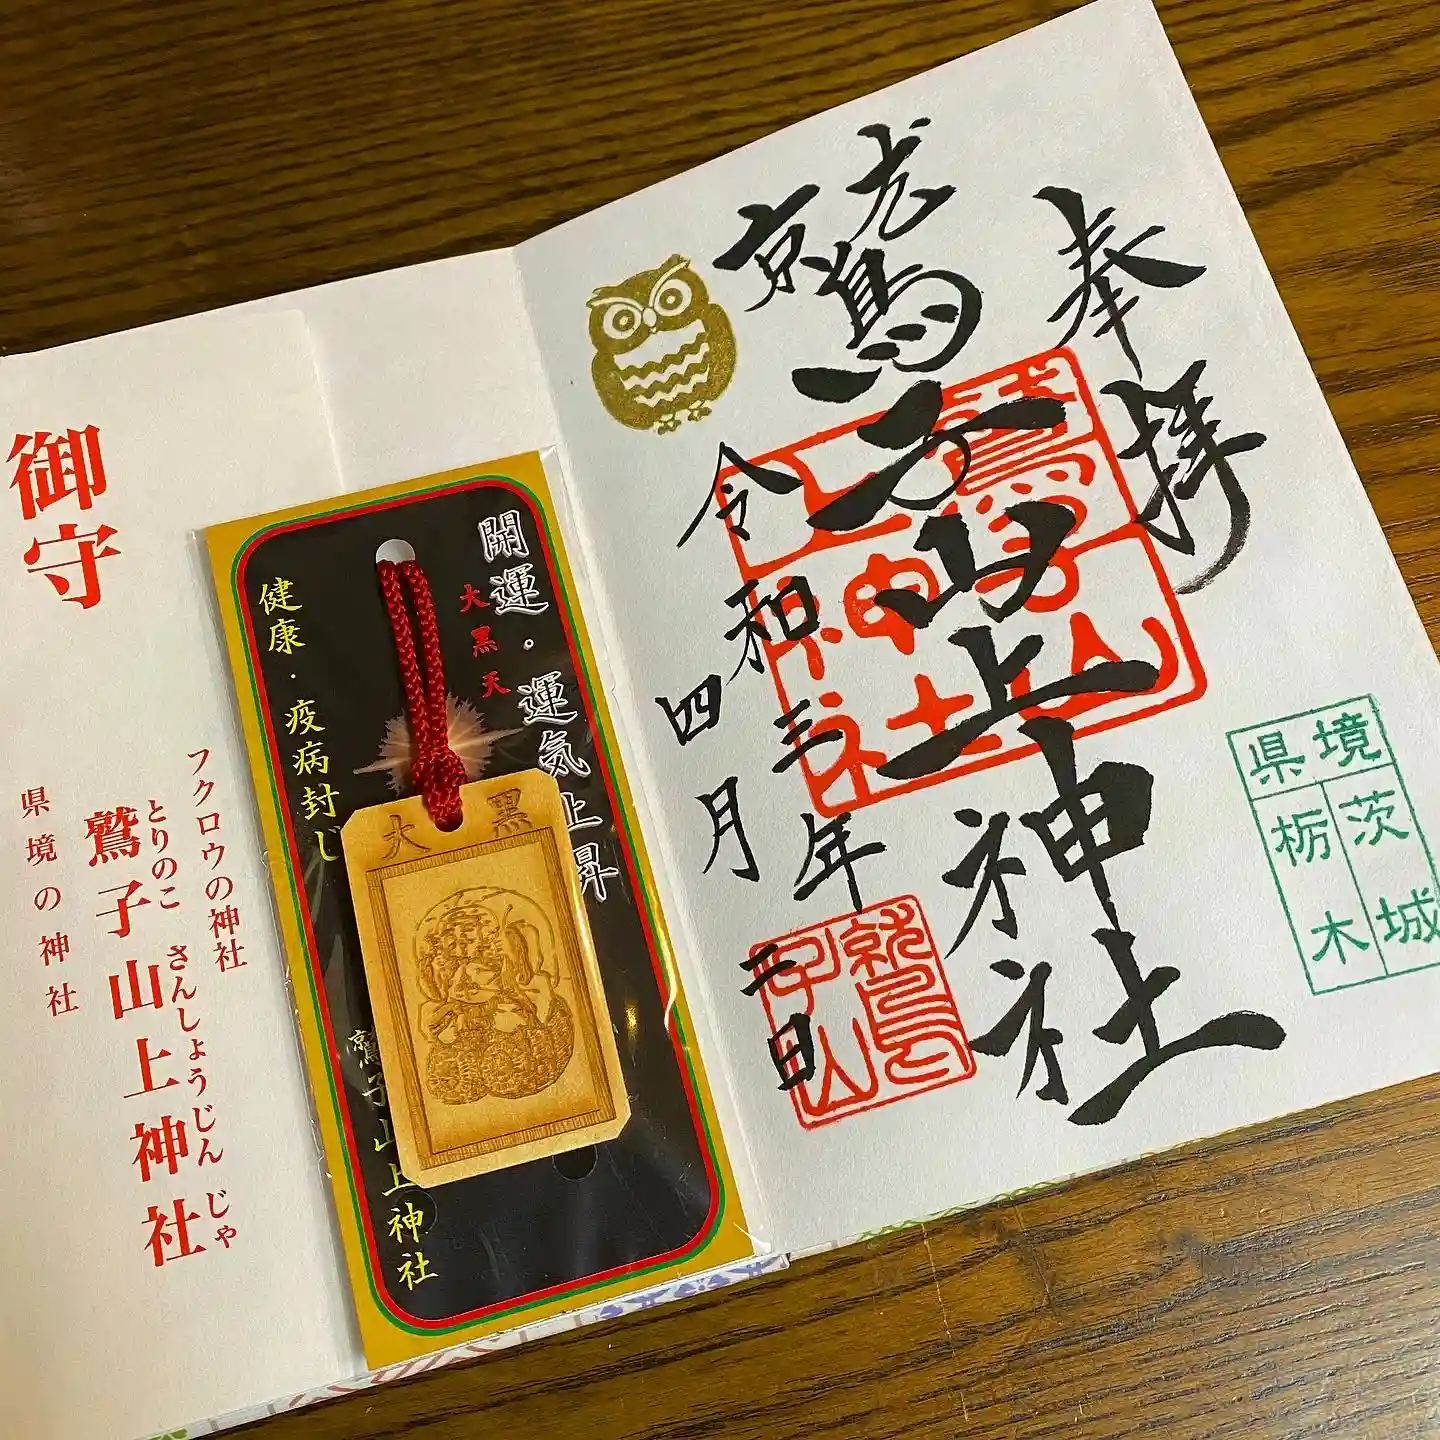 奉拝
鷲子山上神社
令和三年
四月二日
境県
茨城
栃木
御守
フクロウの神社
とりのこ さんしょうじん じゃ
鷲子山上神社
県境の神社
開運・運気上昇
大黒天
健康・疫病封じ
鷲子山上神社
大黒